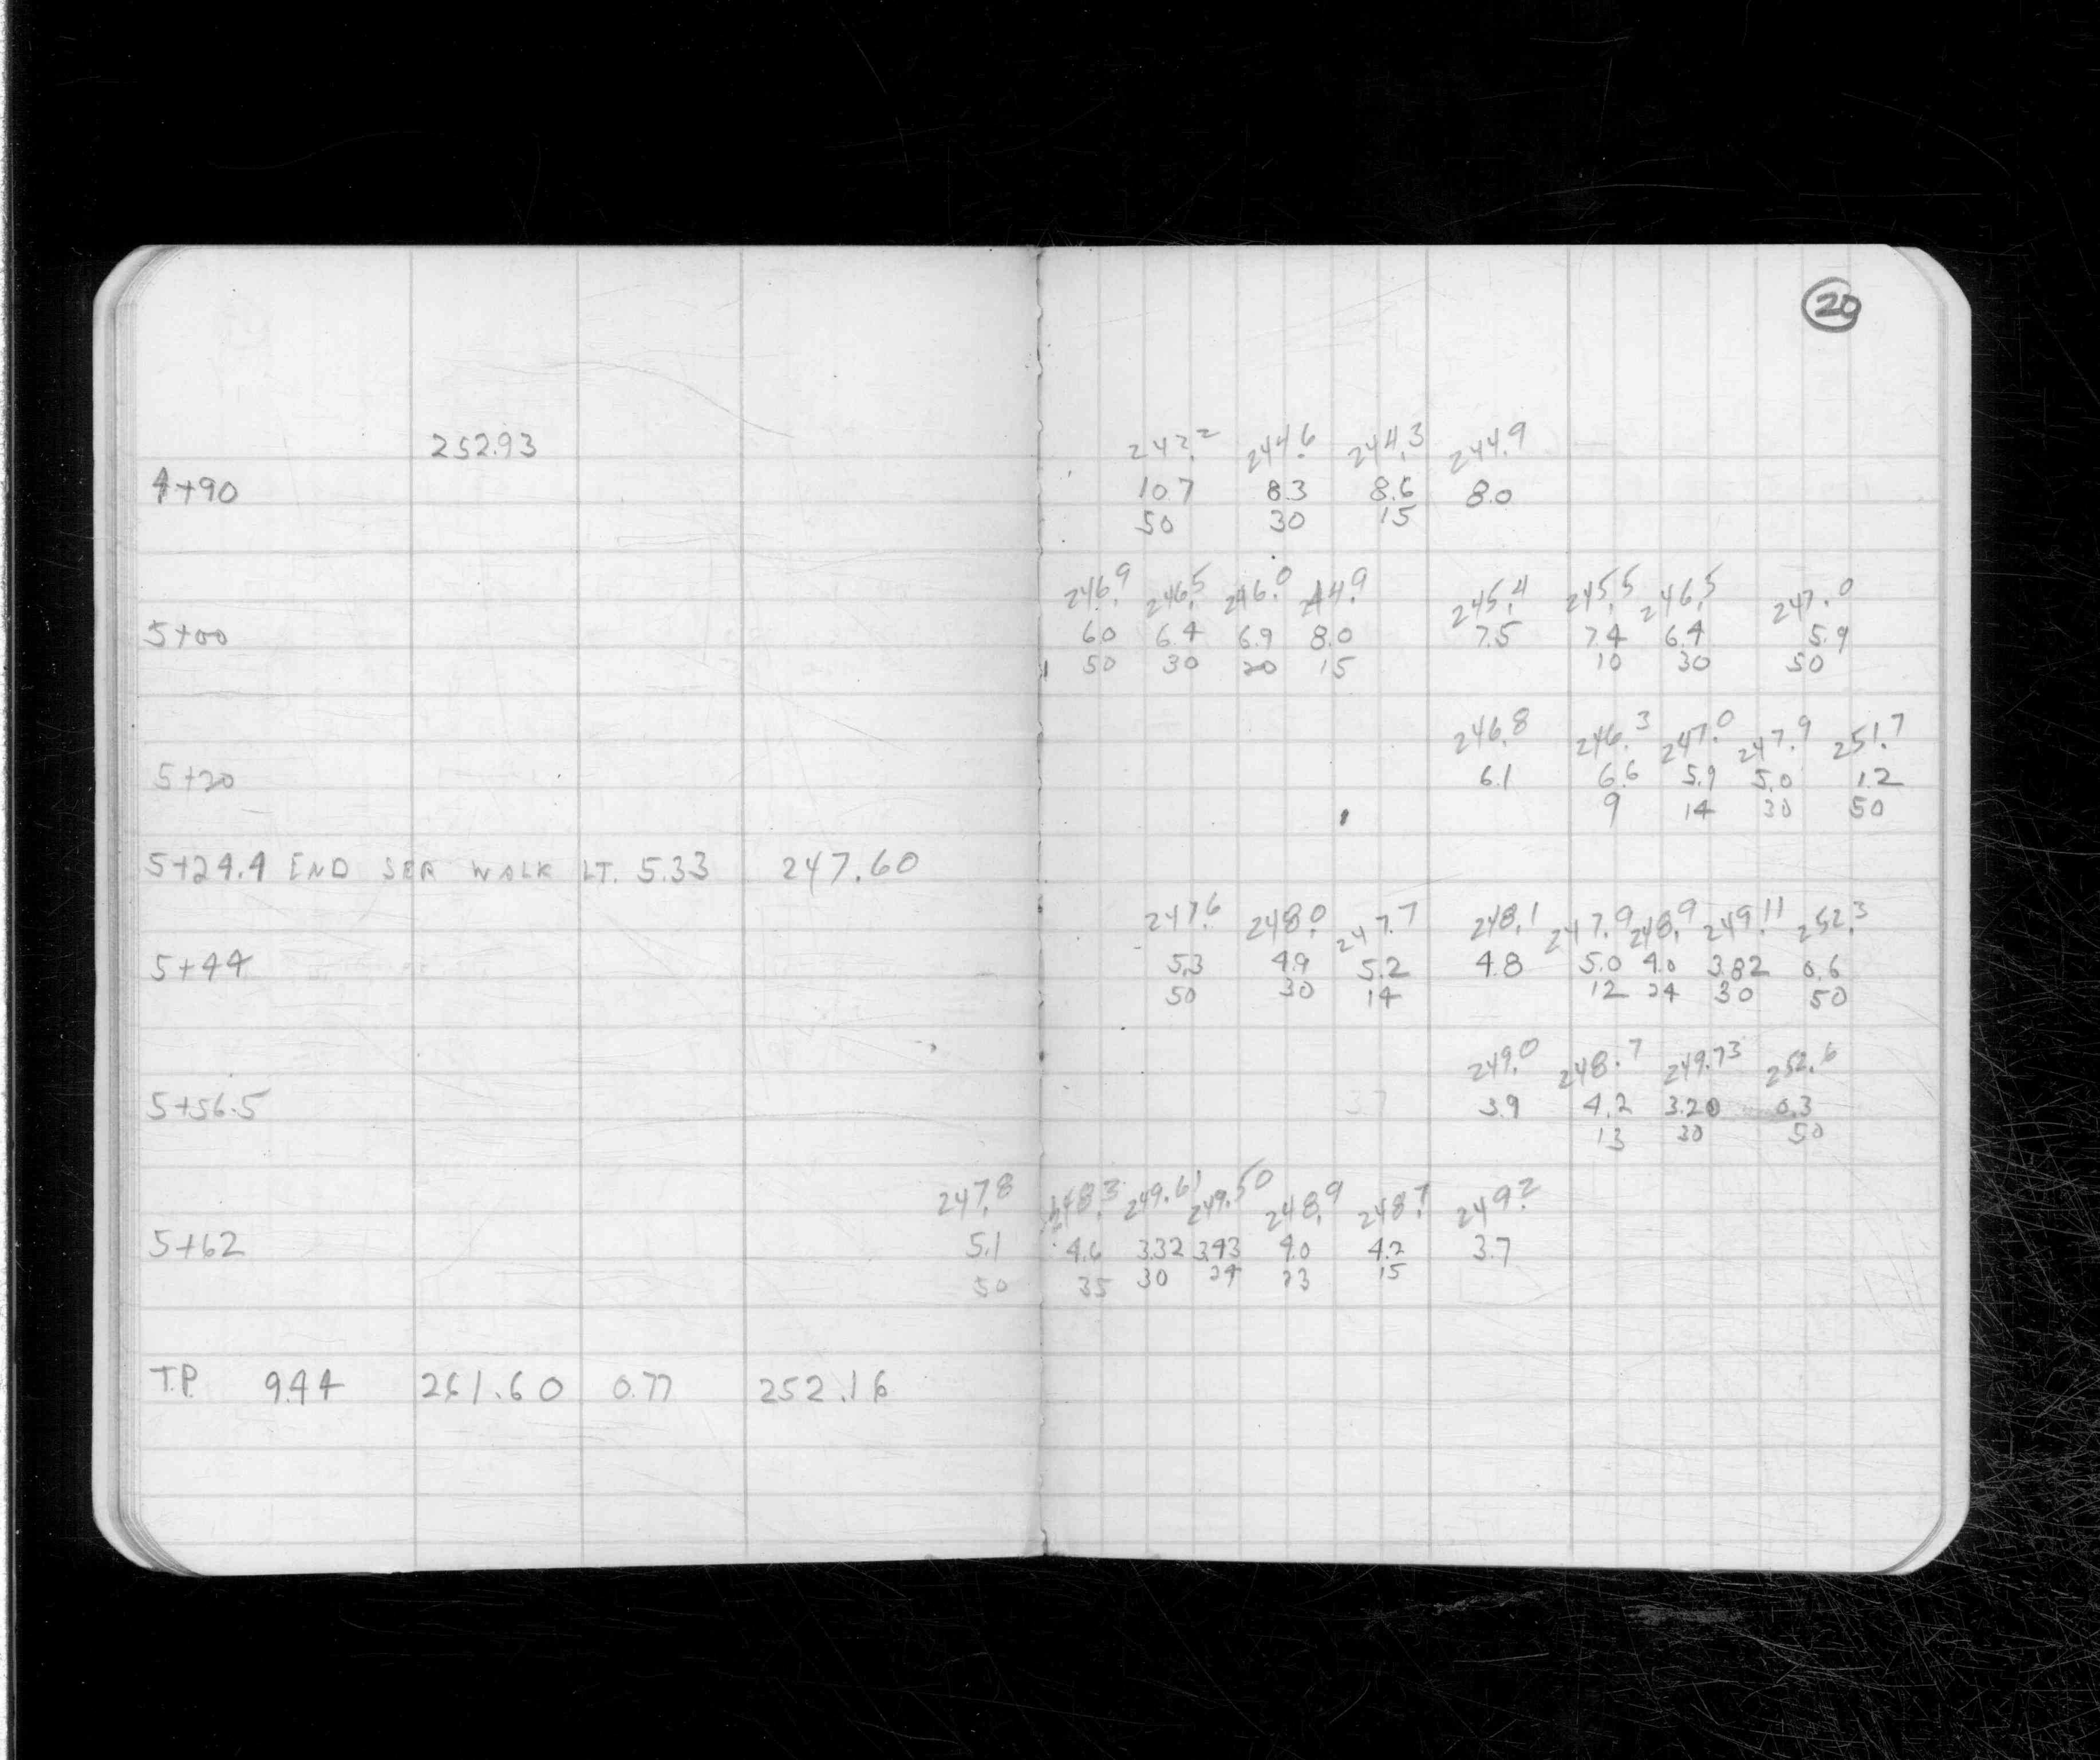 20
252.93
242.2 244.6 244.3 244.9
4+90 10.7 8.3 8.6 8.0
50 30 15
246.9 246.5 246.0 244.9 245.4 245.5 246.5 247.0
5+00 6.0 6.4 6.9 8.0 7.5 7.4 6.4 5.9
50 30 20 15 10 30 50
246.8 246.3 247.0 247.9 251.7
5+20 6.1 6.6 5.9 5.0 1.2
9 14 30 50
5+24.4 END SER WALK LT. 5.33 247.60
247.6 248.0 247.7 248.1 247.9 248.9 249.11 252.3
5+44 5.3 4.9 5.2 4.8 5.0 4.0 3.82 0.6
50 30 14 12 24 30 50
249.0 248.7 249.73 252.6
5+56.5 3.7 3.9 4.2 3.20 0.3
13 30 50
247.8 248.3 249.61 249.50 248.9 248.7 249.2
5+62 5.1 4.6 3.32 3.43 4.0 4.2 3.7
50 35 30 24 23 15
T.P. 9.44 261.60 0.77 252.16